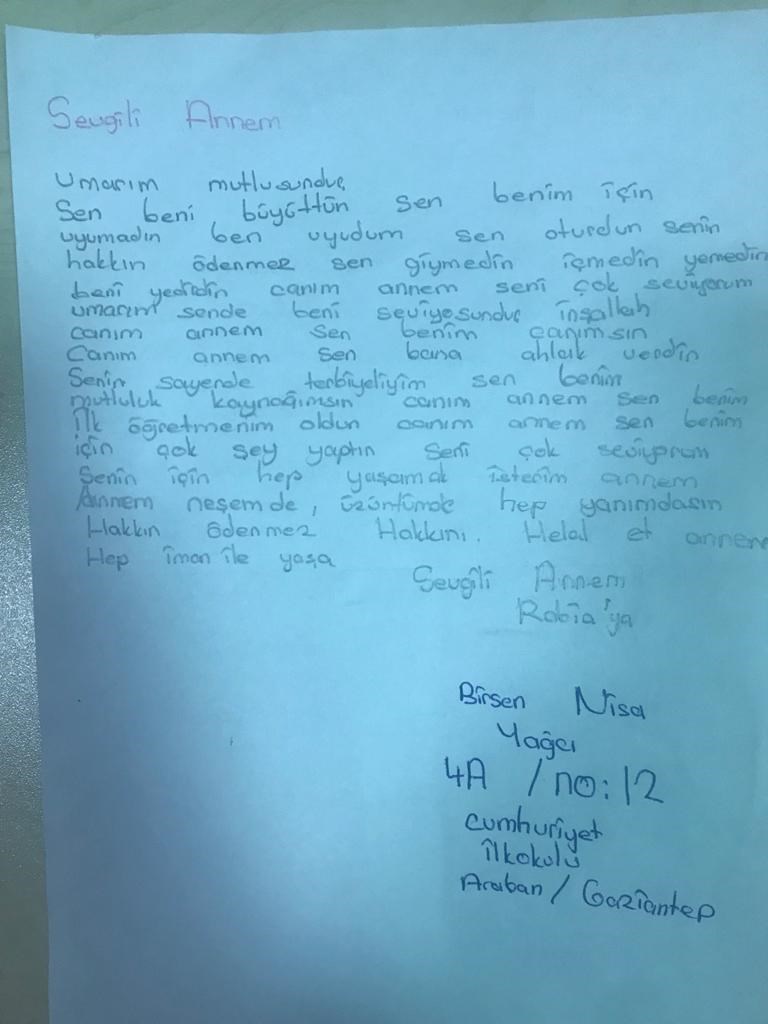 Sevgili Annem
Umarım mutlusundur
Sen beni büyüttün sen benim için
uyumadın ben uyudum sen oturdun senin
hakkın ödenmez sen giymedin içmedin yemedin
beni yedirdin canım annem seni çok seviyorum
umarım sende beni seviyosundur inşallah
canım annem sen benim canımsın
Canım annem sen bana ahlak verdin
Senin sayende terbiyeliyim sen benim
mutluluk kaynağımsın canım annem sen benim
ilk öğretmenim oldun canım annem sen benim
için çok şey yaptın Seni çok seviyorum
Senin için hep yaşamak isterim annem
Annem neşemde, hep yanımdasın
Hakkın ödenmez Hakkını. Helal et annem
Hep iman ile yaşa
Sevgili Annem
Rabia'ya
Birsen Nisa
Yağcı
4A / no: 12
Cumhuriyet
ilkokulu
Araban / Gaziantep